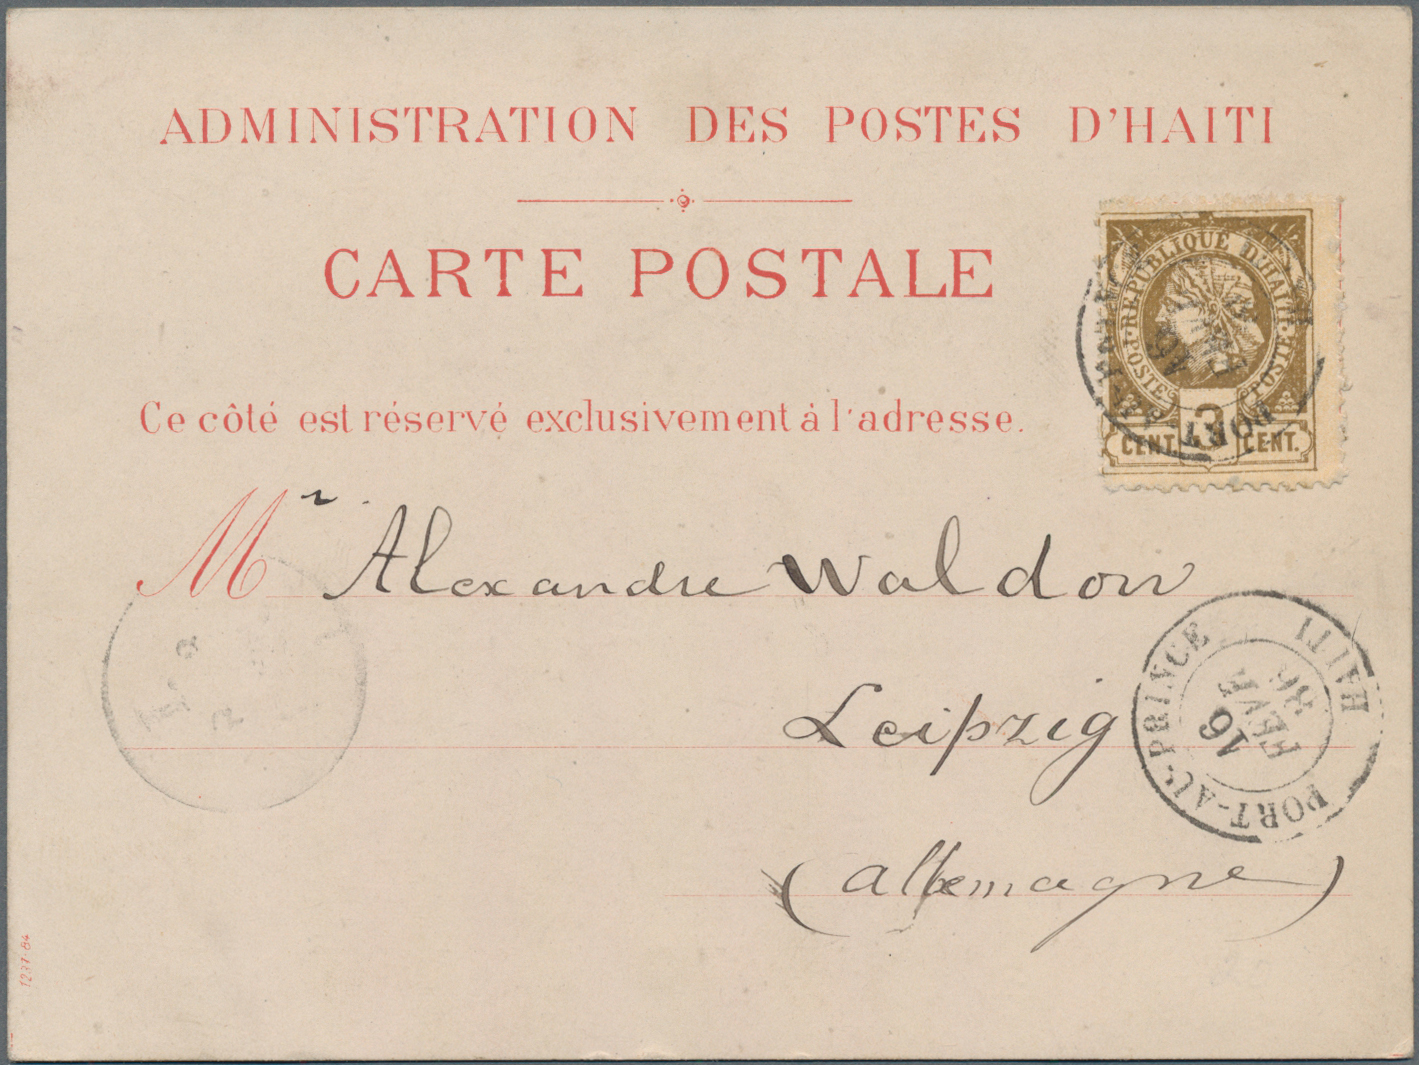 ADMINISTRATION DES POSTES D'HAITI
CARTE POSTALE
REPUBLIQUE D'HAITI
POSTES POSTES
CENT. 3 CENT.
PORT-AU-PRINCE
Ce côté est réservé exclusivement à l'adresse.
Mr Alexandre Waldow
Leipzig
PORT-AU-PRINCE HAITI
16
FEVR
86
(Allemagne)
1237·84